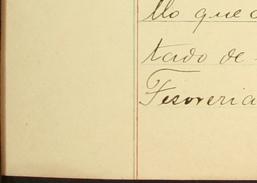 llo que
tado de
Tesoreria